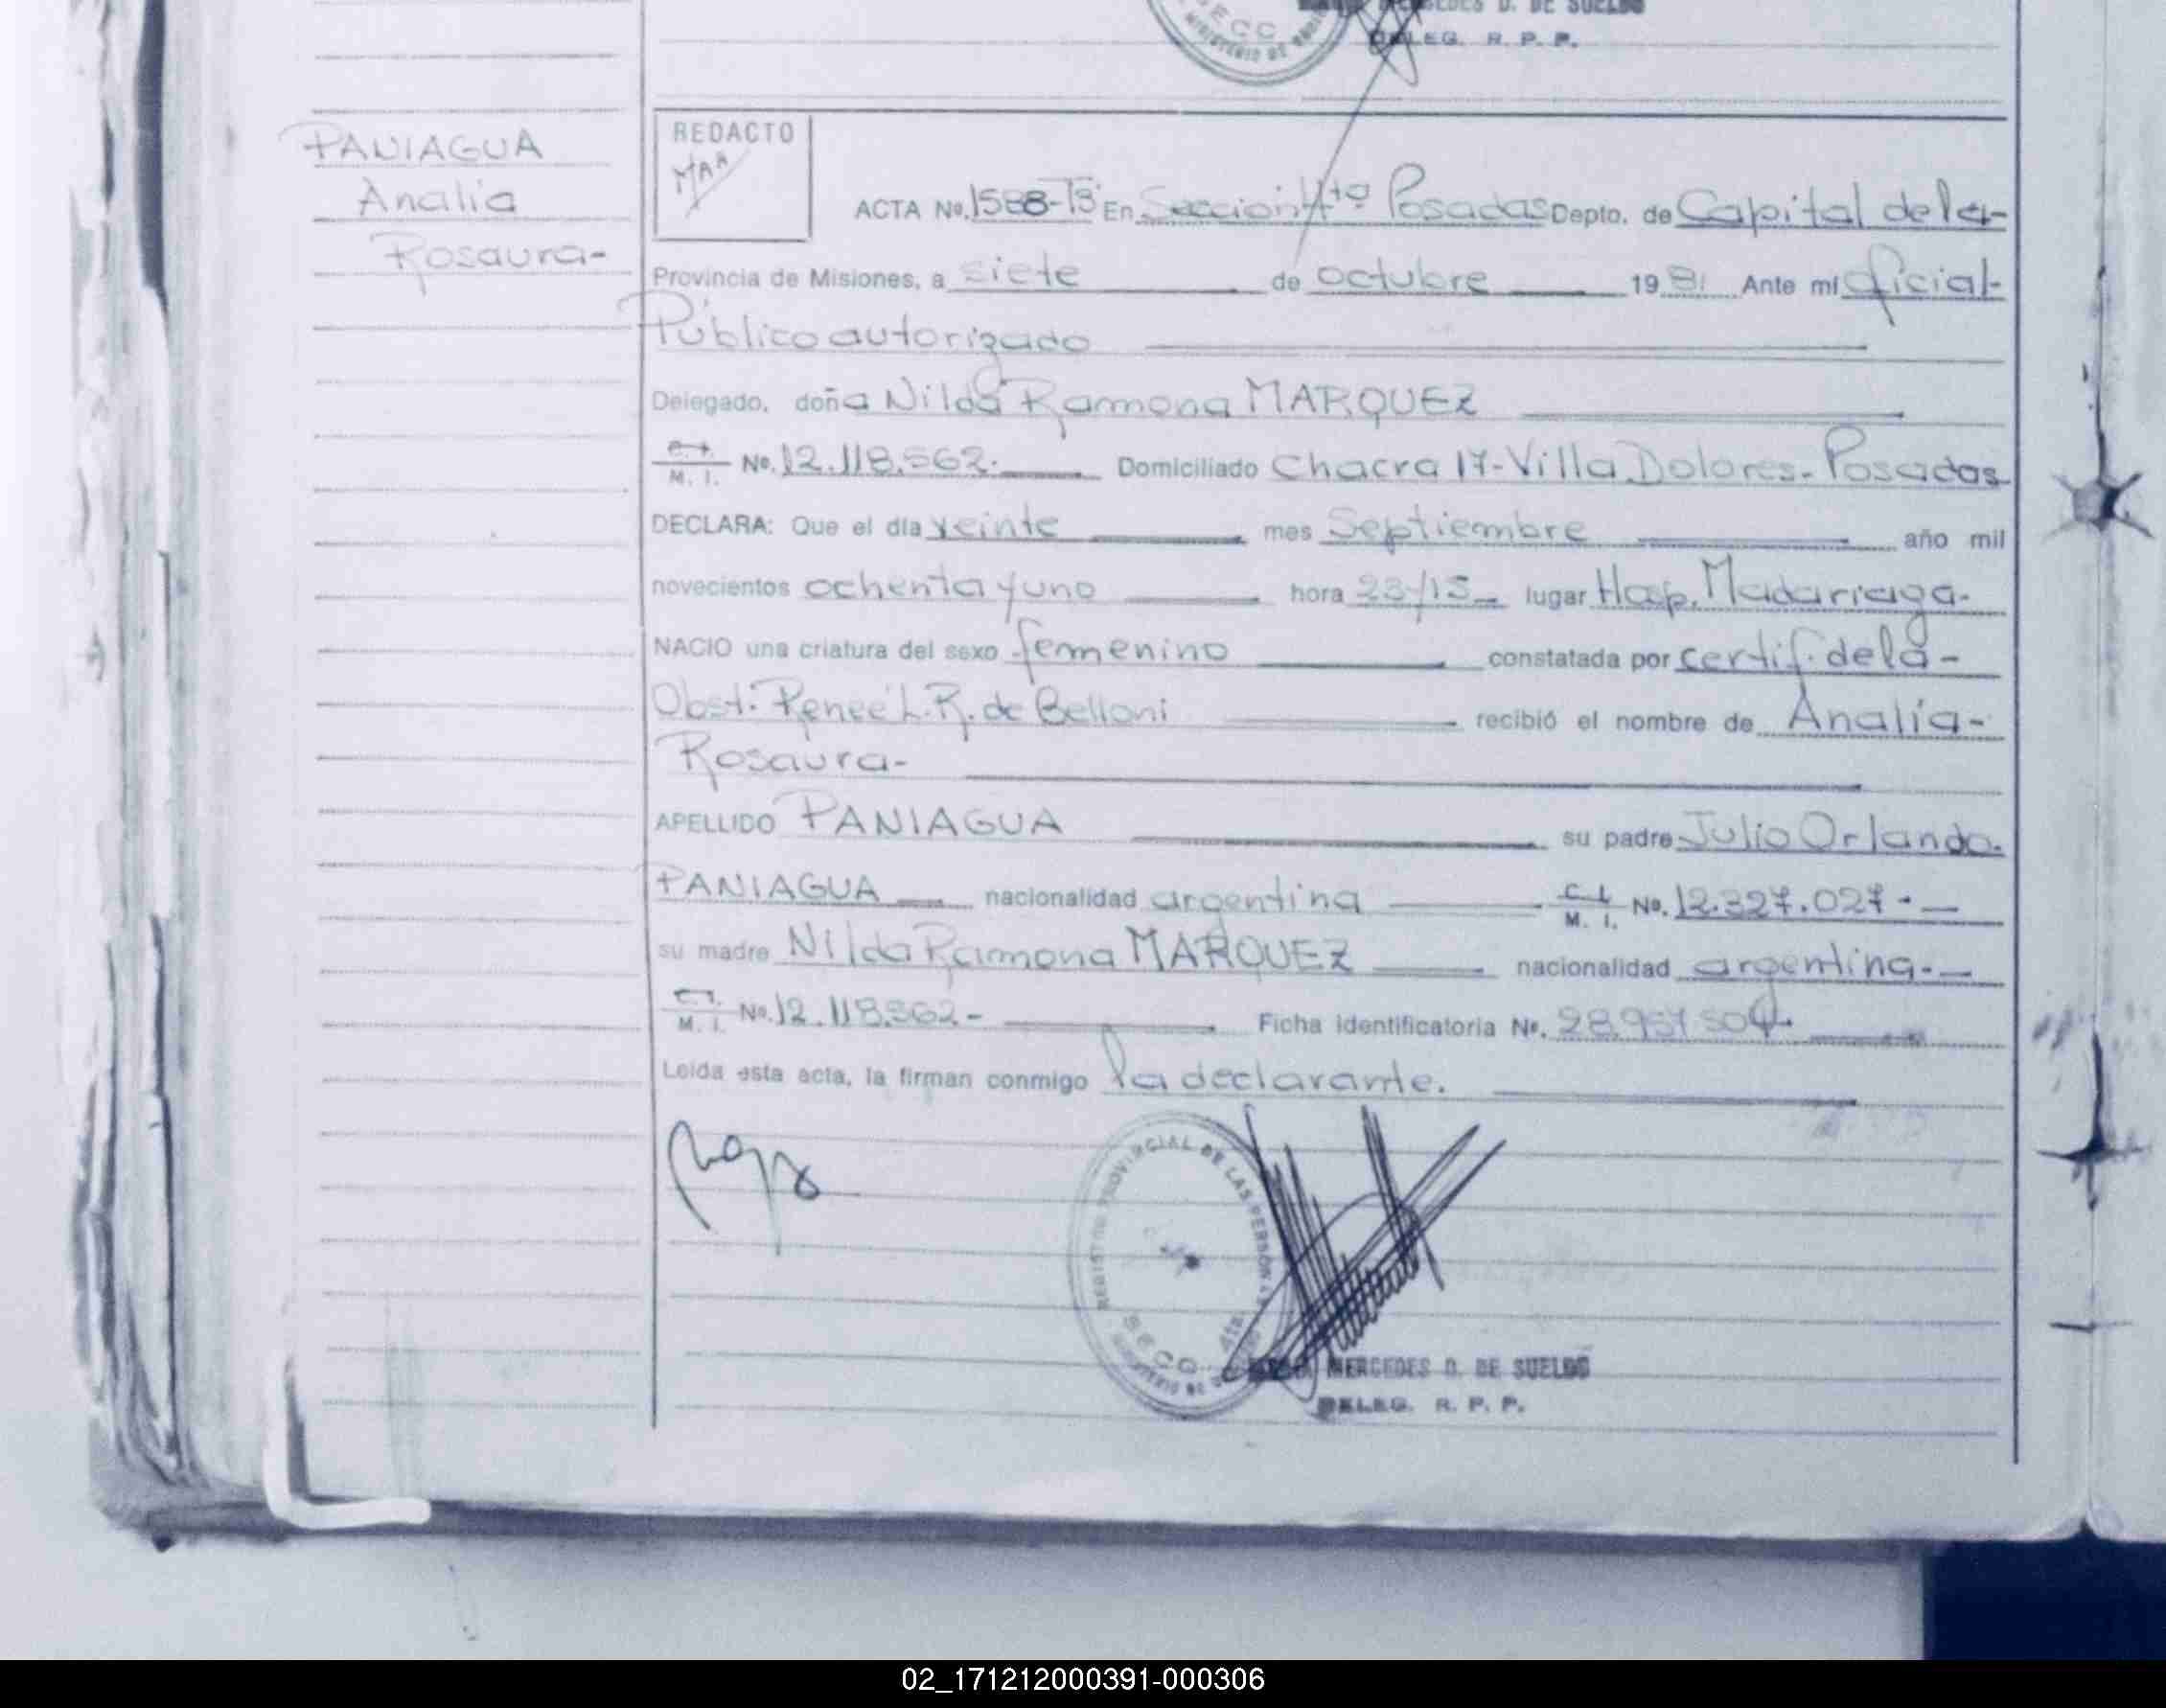 MERCEDES D. DE SUELDO
DELEG. R. P. P.
PANIAGUA
Analía
Rosaura-
REDACTO
ACTA No. 1588-Tº En Sección 4ta Posadas Depto. de Capital de la-
Provincia de Misiones, a siete de octubre 1981 Ante mí Oficial-
Público autorizado
Delegado, doña Nilda Ramona MARQUEZ
C. I. M. I. No. 12.118.562. Domiciliado Chacra 17-Villa Dolores-Posadas
DECLARA: Que el día veinte mes Septiembre año mil
novecientos ochenta y uno hora 23/15 lugar Hosp. Madariaga-
NACIO una criatura del sexo femenino constatada por certif. de la-
Obst: Renee L. R. de Belloni recibió el nombre de Analía-
Rosaura-
APELLIDO PANIAGUA su padre Julio Orlando.
PANIAGUA nacionalidad argentina C. I. M. I. No. 12.327.027-
su madre Nilda Ramona MARQUEZ nacionalidad argentina-
C. I. M. I. No. 12.118.562- Ficha identificatoria No.
Leída esta acta, la firman conmigo la declarante.
REGISTRO PROVINCIAL DE LAS PERSONAS
MERCEDES D. DE SUELDO
DELEG. R. P. P.
02_171212000391-000306